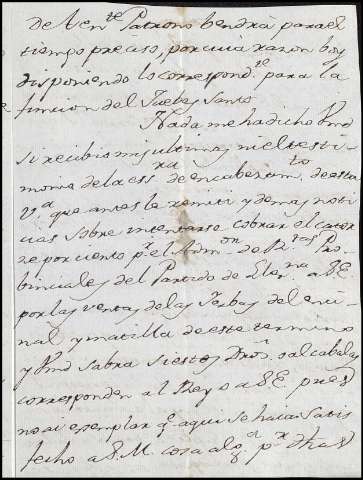 De Ven.te Patrono bendrá para el
tiempo preciso, por cuia razon boy
disponiendo lo correspond.te para la
funcion del Juebes Santo
Nada me ha dicho Vmd
si recibio mis ultimas, ni el testi-
monio de la ess.ra de encabezam.to de esta
V.a que antes la remiti y demas noti
cias sobre intentarse cobrar el cator
ze por ciento p.r el Adm.on de R.tas Pro
binciales del Partido de Ller.na a S.E.
por las ventas de las Yerbas del enci-
nal y matilla de este termino
y Vmd sabra si estos Dros. o alcabalas
corresponden al Rey o a S.E. pues
no ai exemplar q.e aqui se haia satis
fecho a S.M. cosa alg.a p.r